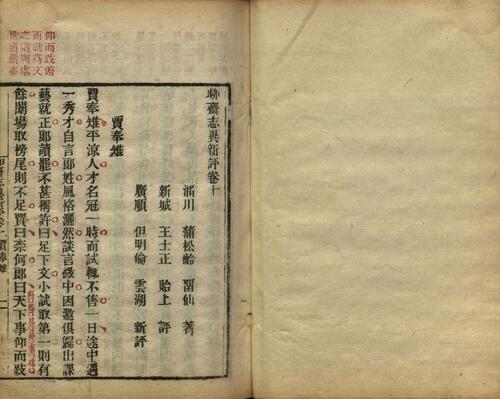 聊齋志異新評卷十
淄川 蒲松齡 畱仙 著
新城 王士正 貽上 評
廣順 但明倫 雲湖 新評
賈奉雉
賈奉雉平涼人才名冠一時而試輒不售一日途中遇
一秀才自言郎姓風格灑然談言微中因邀俱歸出課
藝就正郎讀罷不甚稱許曰足下文小試取第一則有
餘闈場取榜尾則不足賈曰奈何郎曰天下事仰而跂
仰而跂俯
而就爲文
之道與處
世道然亦